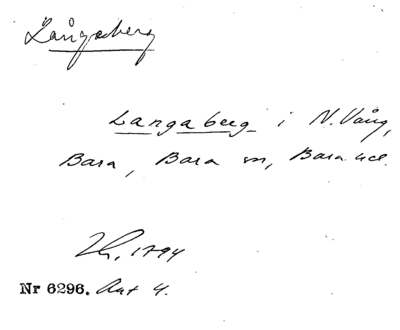 Långaberg
Langaberg i N. Vång,
Bara, Bara sn, Bara hd.
1794
Nr 6296. Akt 4.